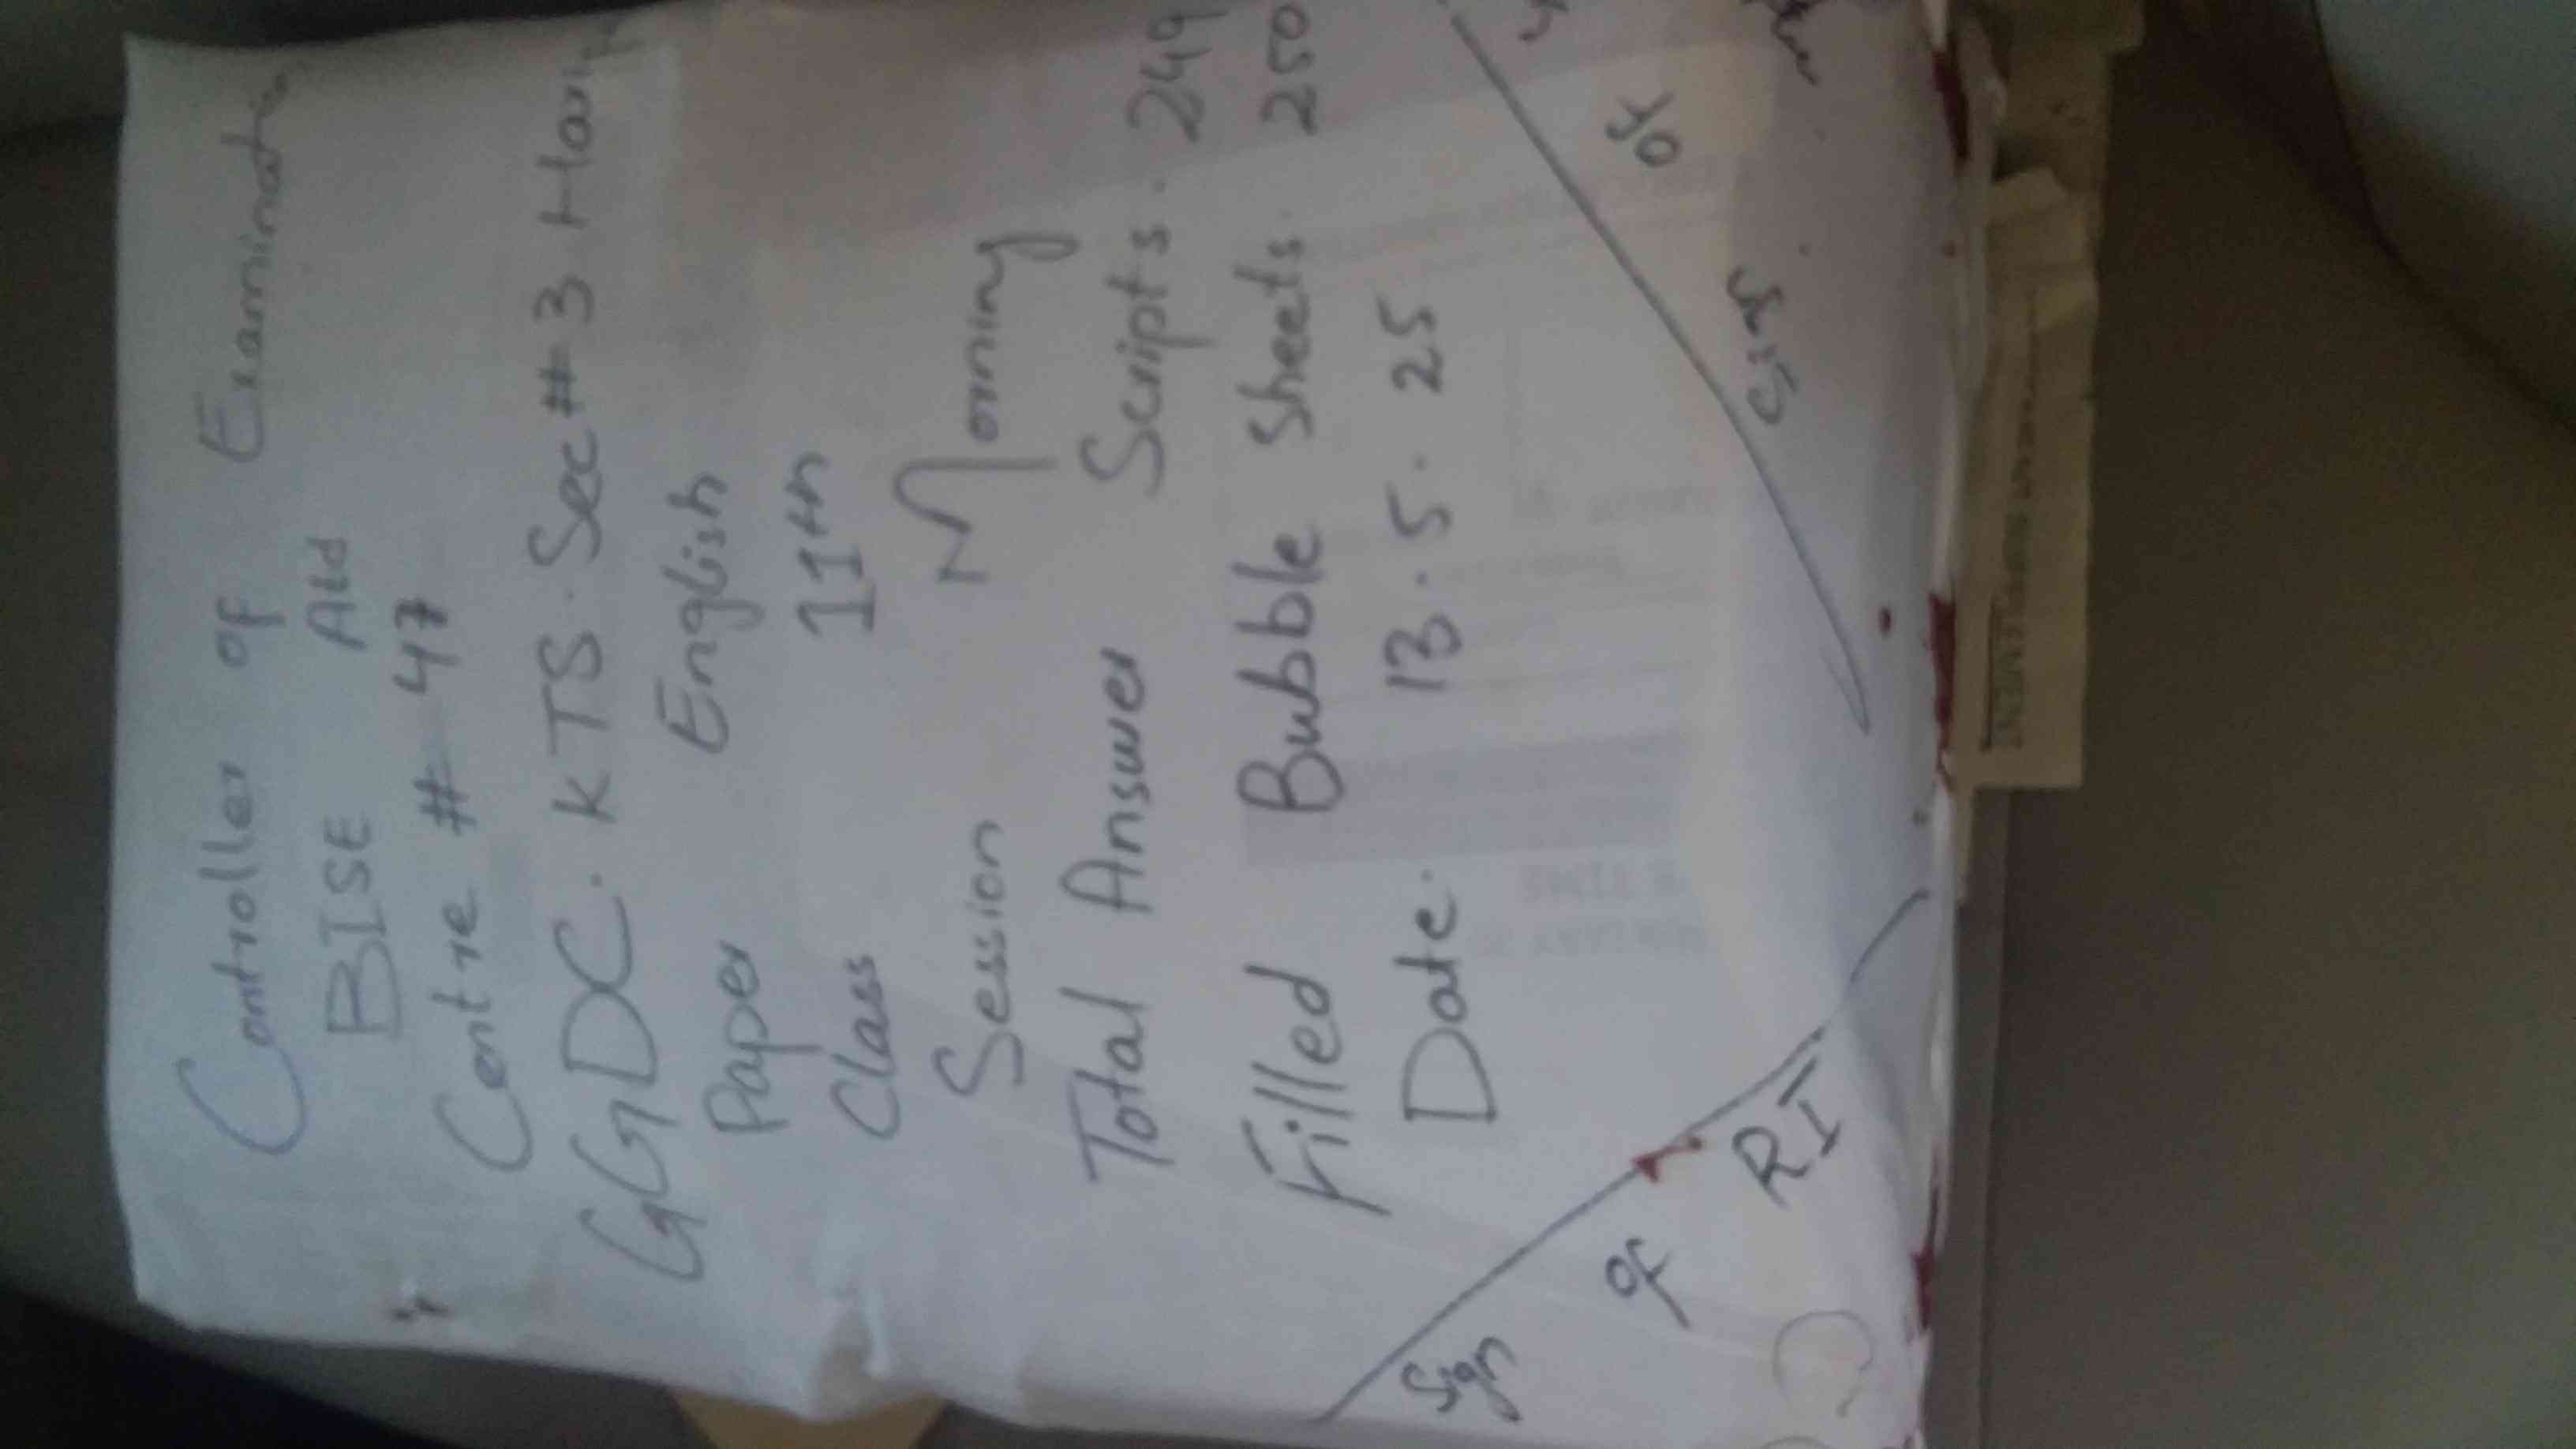 Controller of Examinatio
BISE Atd
Centre # 47
GGDC. KTS. Sec # 3 Harip
Paper English
Class 11th
Session Morning
Total Answer Scripts. 249
Filled Bubble Sheets. 250
Date. 13.5.25
Sign of RI
Sign of